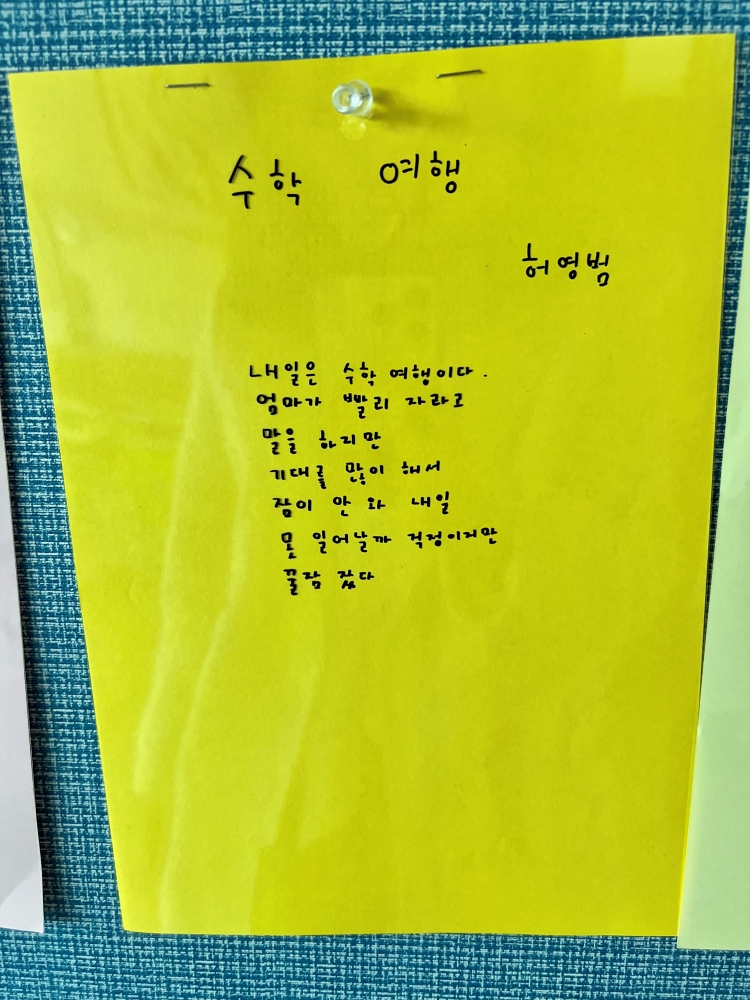 수학 여행
허영범
내일은 수학 여행이다.
엄마가 빨리 자라고
말을 하지만
기대를 많이 해서
잠이 안 와 내일
못 일어날까 걱정이지만
꿀잠 잤다